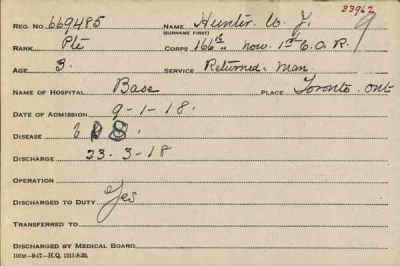 33962
REG. NO. 669485 NAME Hunter. W. J. 9
(SURNAME FIRST)
RANK Pte CORPS 166th now. 1st C.O.R.
AGE 3. SERVICE Returned. Man
NAME OF HOSPITAL Base PLACE Toronto. Ont
DATE OF ADMISSION 9-1-18.
DISEASE
DISCHARGE 23.3-18
OPERATION
DISCHARGED TO DUTY Yes
TRANSFERRED TO
DISCHARGED BY MEDICAL BOARD
100M—9-17—H.Q. 1211-8-30.